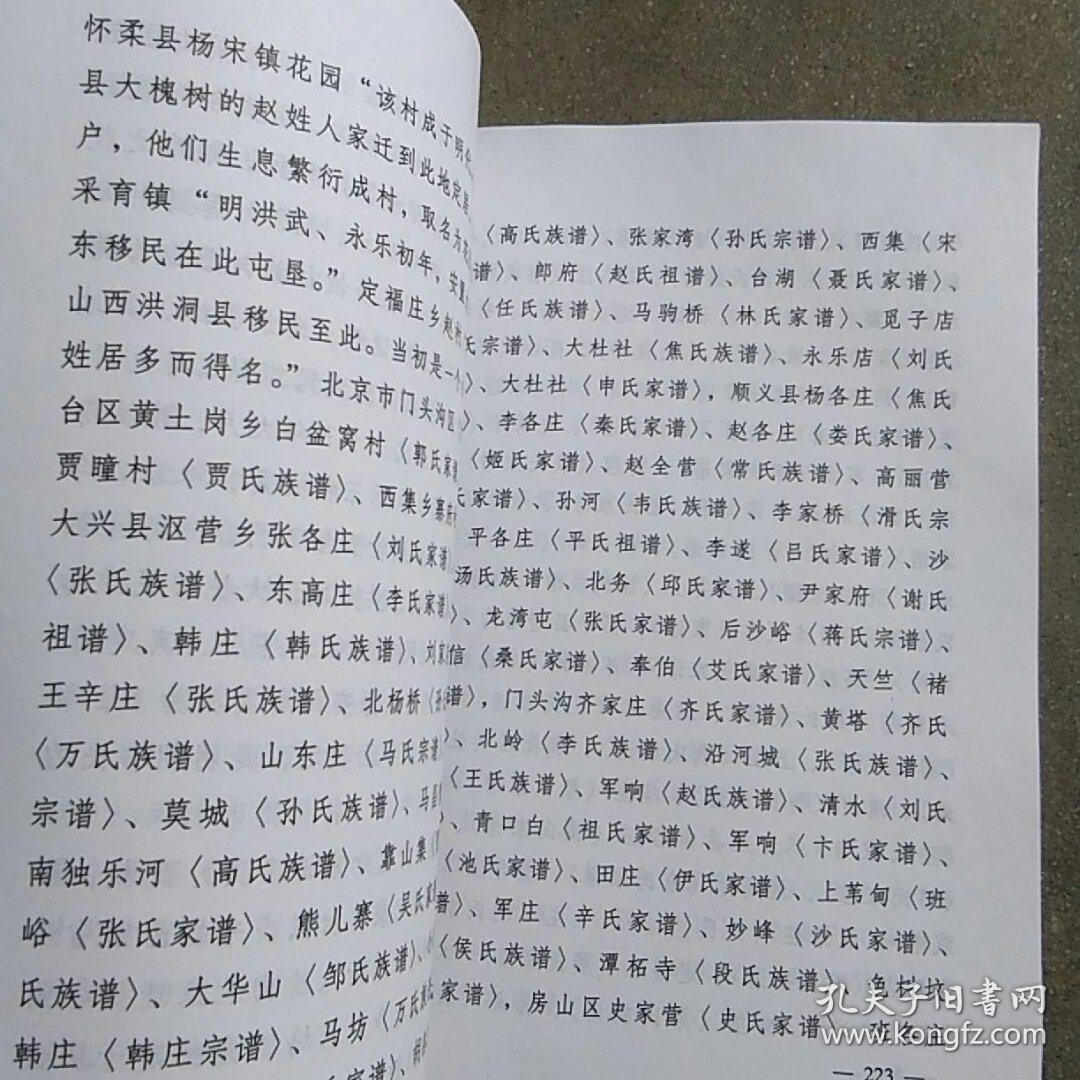 怀柔县杨宋镇花园“该村成于明
县大槐树的赵姓人家迁到此地定
户，他们生息繁衍成村，取名为
采育镇“明洪武、永乐初年，安置
东移民在此屯垦。”定福庄乡赵村
山西洪洞县移民至此。当初是一个
姓居多而得名。”北京市门头沟区
台区黄土岗乡白盆窝村〈郭氏家谱
贾瞳村〈贾氏族谱〉、西集乡寨府
大兴县沤营乡张各庄〈刘氏家谱
〈张氏族谱〉、东高庄〈李氏家谱
祖谱〉、韩庄〈韩氏族谱〉、刘家
王辛庄〈张氏族谱〉、北杨桥〈孙
〈万氏族谱〉、山东庄〈马氏宗谱
宗谱〉、莫城〈孙氏族谱〉、马昌
南独乐河〈高氏族谱〉、靠山集〈
峪〈张氏家谱〉、熊儿寨〈吴氏
氏族谱〉、大华山〈邹氏族谱〉、
韩庄〈韩庄宗谱〉、马坊〈万氏
氏家谱〉、
〈高氏族谱〉、张家湾〈孙氏宗谱〉、西集〈宋
谱〉、郎府〈赵氏祖谱〉、台湖〈聂氏家谱〉、
〈任氏族谱〉、马驹桥〈林氏家谱〉、觅子店
氏宗谱〉、大杜社〈焦氏族谱〉、永乐店〈刘氏
〉、大杜社〈申氏家谱〉，顺义县杨各庄〈焦氏
〉、李各庄〈秦氏家谱〉、赵各庄〈娄氏家谱〉、
〈姬氏家谱〉、赵全营〈常氏族谱〉、高丽营
氏家谱〉、孙河〈韦氏族谱〉、李家桥〈滑氏宗
平各庄〈平氏祖谱〉、李遂〈吕氏家谱〉、沙
汤氏族谱〉、北务〈邱氏家谱〉、尹家府〈谢氏
〉、龙湾屯〈张氏家谱〉、后沙峪〈蒋氏宗谱〉、
信〈桑氏家谱〉、奉伯〈艾氏家谱〉、天竺〈褚
谱〉，门头沟齐家庄〈齐氏家谱〉、黄塔〈齐氏
〉、北岭〈李氏族谱〉、沿河城〈张氏族谱〉、
〈王氏族谱〉、军响〈赵氏族谱〉、清水〈刘氏
〉、青口白〈祖氏家谱〉、军响〈卞氏家谱〉、
〈池氏家谱〉、田庄〈伊氏家谱〉、上苇甸〈班
谱〉、军庄〈辛氏家谱〉、妙峰〈沙氏家谱〉、
〈侯氏族谱〉、潭柘寺〈段氏族谱〉、色树坟
家谱〉，房山区史家营〈史氏家谱〉、班各庄
— 223 —
孔夫子旧书网
www.kongfz.com